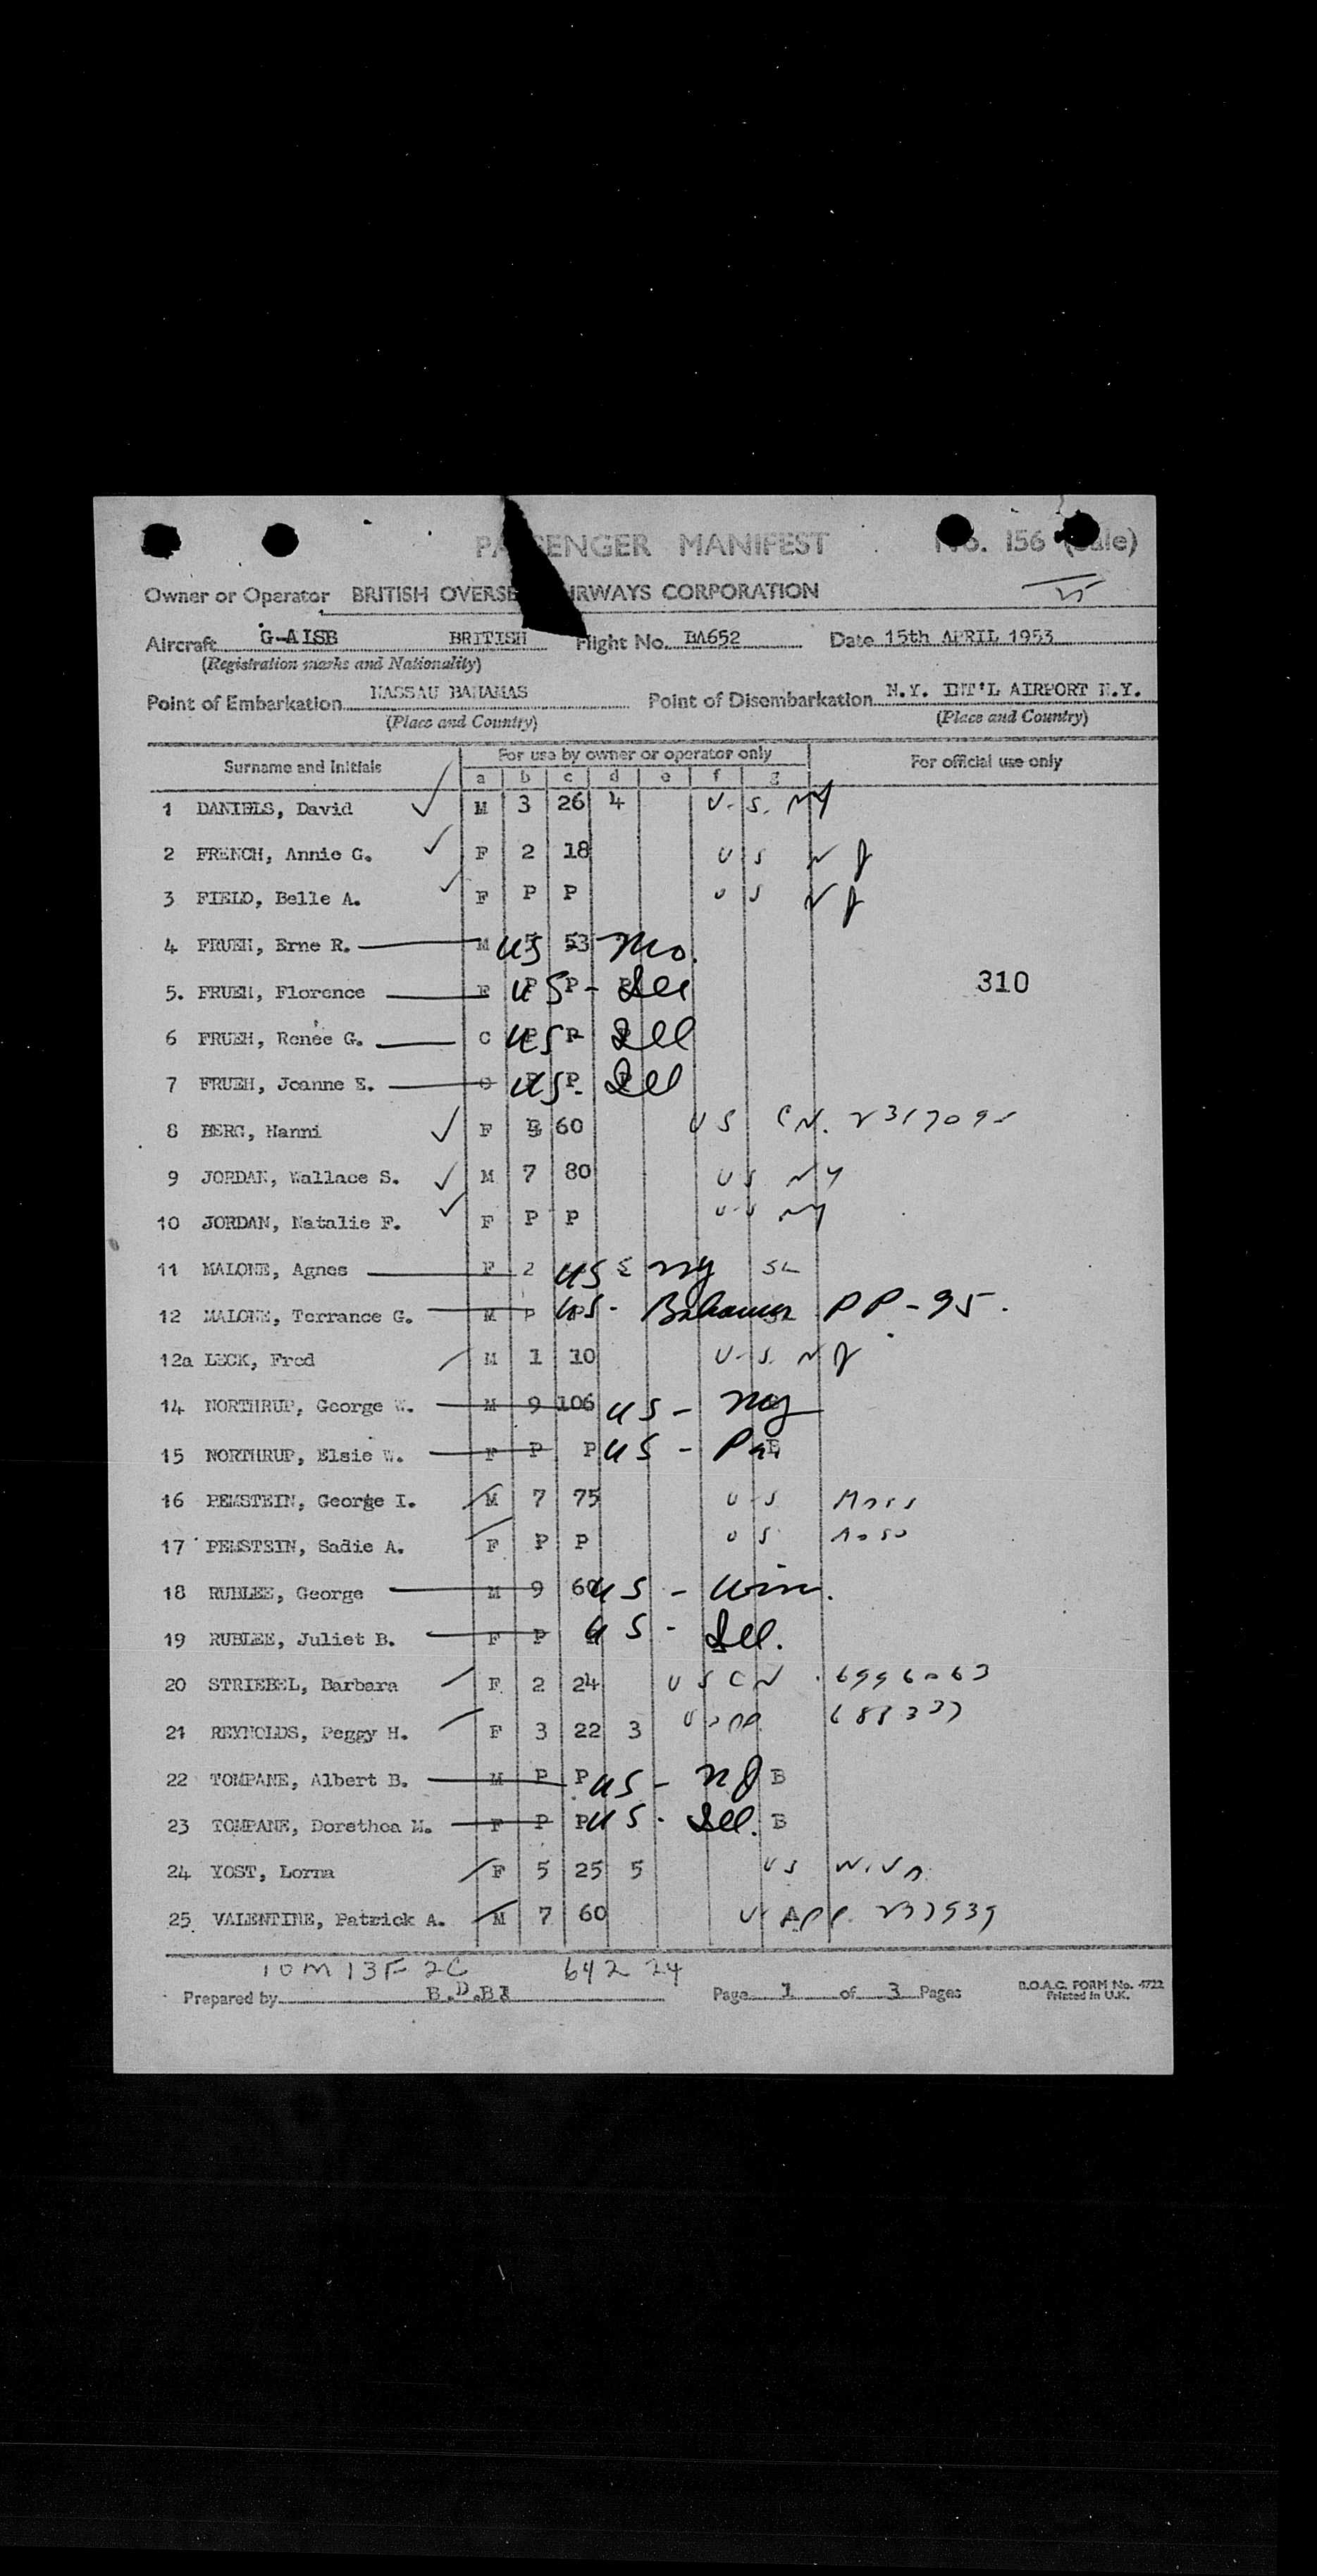 PASSENGER MANIFEST No. 156 (Sale)
Owner or Operator BRITISH OVERSE AIRWAYS CORPORATION
Aircraft G-AISB BRITISH Flight No. BA652 Date 15th APRIL 1953
(Registration marks and Nationality)
Point of Embarkation NASSAU BAHAMAS Point of Disembarkation N.Y. INT'L AIRPORT N.Y.
(Place and Country) (Place and Country)
Surname and Initials For use by owner or operator only For official use only
a b c d e f g
1 DANIELS, David M 3 26 4 U.S. NY
2 FRENCH, Annie G. F 2 18 U S N J
3 FIELD, Belle A. F P P U S N J
4 FRUEH, Erne R. M 5 53 US Mo.
5. FRUEH, Florence F P P US - Ill
310
6 FRUEH, Renee G. C P P US - Ill
7 FRUEH, Joanne E. C P P US - Ill
8 BERG, Hanni F 60 U S C N. 2317095
9 JORDAN, Wallace S. M 7 80 U S N Y
10 JORDAN, Natalie F. F P P U S NY
11 MALONE, Agnes F 2 US NY
12 MALONE, Terrance G. M P P US - Bahamas PP - 95.
12a LECK, Fred M 1 10 U.S. N J
14 NORTHRUP, George W. M 9 106 US - NY
15 NORTHRUP, Elsie W. F P P US - Pa.
16 PEMSTEIN, George I. M 7 75 U S Mass
17 PEMSTEIN, Sadie A. F P P U S Mass
18 RUBLEE, George M 9 60 US - Wisc.
19 RUBLEE, Juliet B. F P US - Ill.
20 STRIEBEL, Barbara F 2 24 U S C N 6996063
21 REYNOLDS, Peggy H. F 3 22 3 US PP 688337
22 TOMPANE, Albert B. M P P US - NJ B
23 TOMPANE, Dorethea M. F P P US - Ill. B
24 YOST, Lorna F 5 25 5 US W.VA.
25 VALENTINE, Patrick A. M 7 60 237939
10M 13F 2C 642 24
Prepared by B.D.BI Page 1 of 3 Pages B.O.A.C. FORM No. 4722
Printed in U.K.